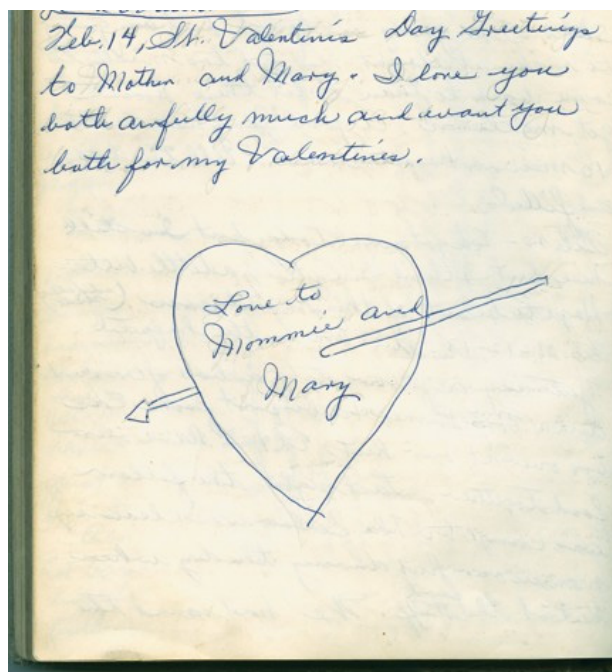 Feb. 14, St. Valentine's Day Greetings
to Mother and Mary. I love you
both awfully much and want you
both for my Valentines.
Love to
Mommie and
Mary